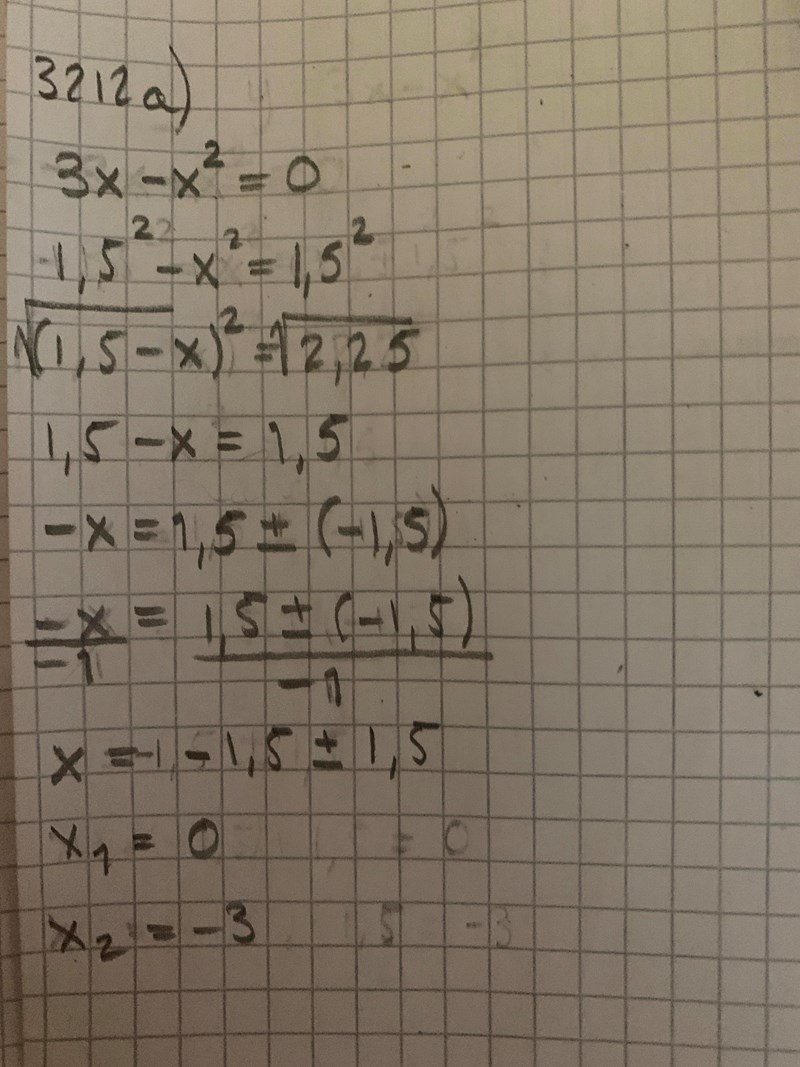 3212a)
3x - x² = 0
1,5² - x² = 1,5²
√(1,5 - x)² = √2,25
1,5 - x = 1,5
-x = 1,5 ± (-1,5)
-x/-1 = 1,5 ± (-1,5)/-1
x = -1,5 ± 1,5
x₁ = 0 = 0
x₂ = -3 ,5 -3